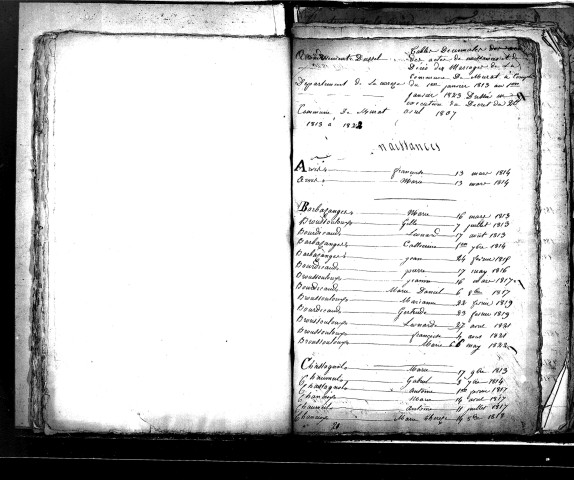 Arrondissement Dussel
Département de la correze
Commune De Murat
1813 à 1822
Tables Décennales
Des actes de naissances et
Décès des Mariages de la
Commune De Murat à Compter
du 1er janvier 1813 au 1er
janvier 1823 Dressée en
execution du Decret du 20
aout 1807
naissances
françoise 13 mars 1814
Marie 13 mars 1814
Barbazanges Marie 16 mars 1813
Broussouloux 7 juillet 1813
Bourdicaud Leonard 17 aout 1813
Barbazanges Catherine 1er 7bre 1814
Barbazanges jean 24 fevrier
Bourdicaud pierre 17 may 1816
Broussouloux jeanne 16 mars 1817
Bourdicaud Marie 6 1817
Broussouloux Marianne 22 fevrier 1819
Bourdicaud Gertrude 23 fevrier 1819
Broussouloux Leonarde 27 avril 1821
Broussouloux françoise avril 1821
Broussouloux Marie 6 may 1822
Chassagnol Marie 17 9bre 1813
Chaumeil Gabriel 3 7bre 1814
Chassagnol antoine 1817
Marie 14 avril 1817
Chaumeil antoine 11 juillet 1817
Marie 1818
20